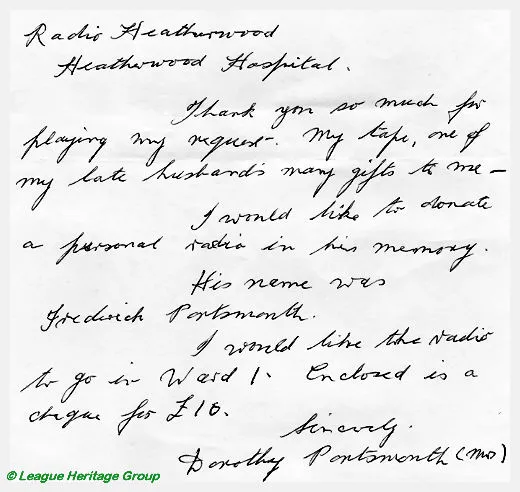 Radio Heatherwood
Heatherwood Hospital.
Thank you so much for
playing my request. My tape, one of
my late husband's many gifts to me –
I would like to donate
a personal radio in his memory.
His name was
Frederick Portsmouth.
I would like the radio
to go in Ward 1. Enclosed is a
cheque for £10.
Sincerely.
Dorothy Portsmouth (Mrs)
© League Heritage Group